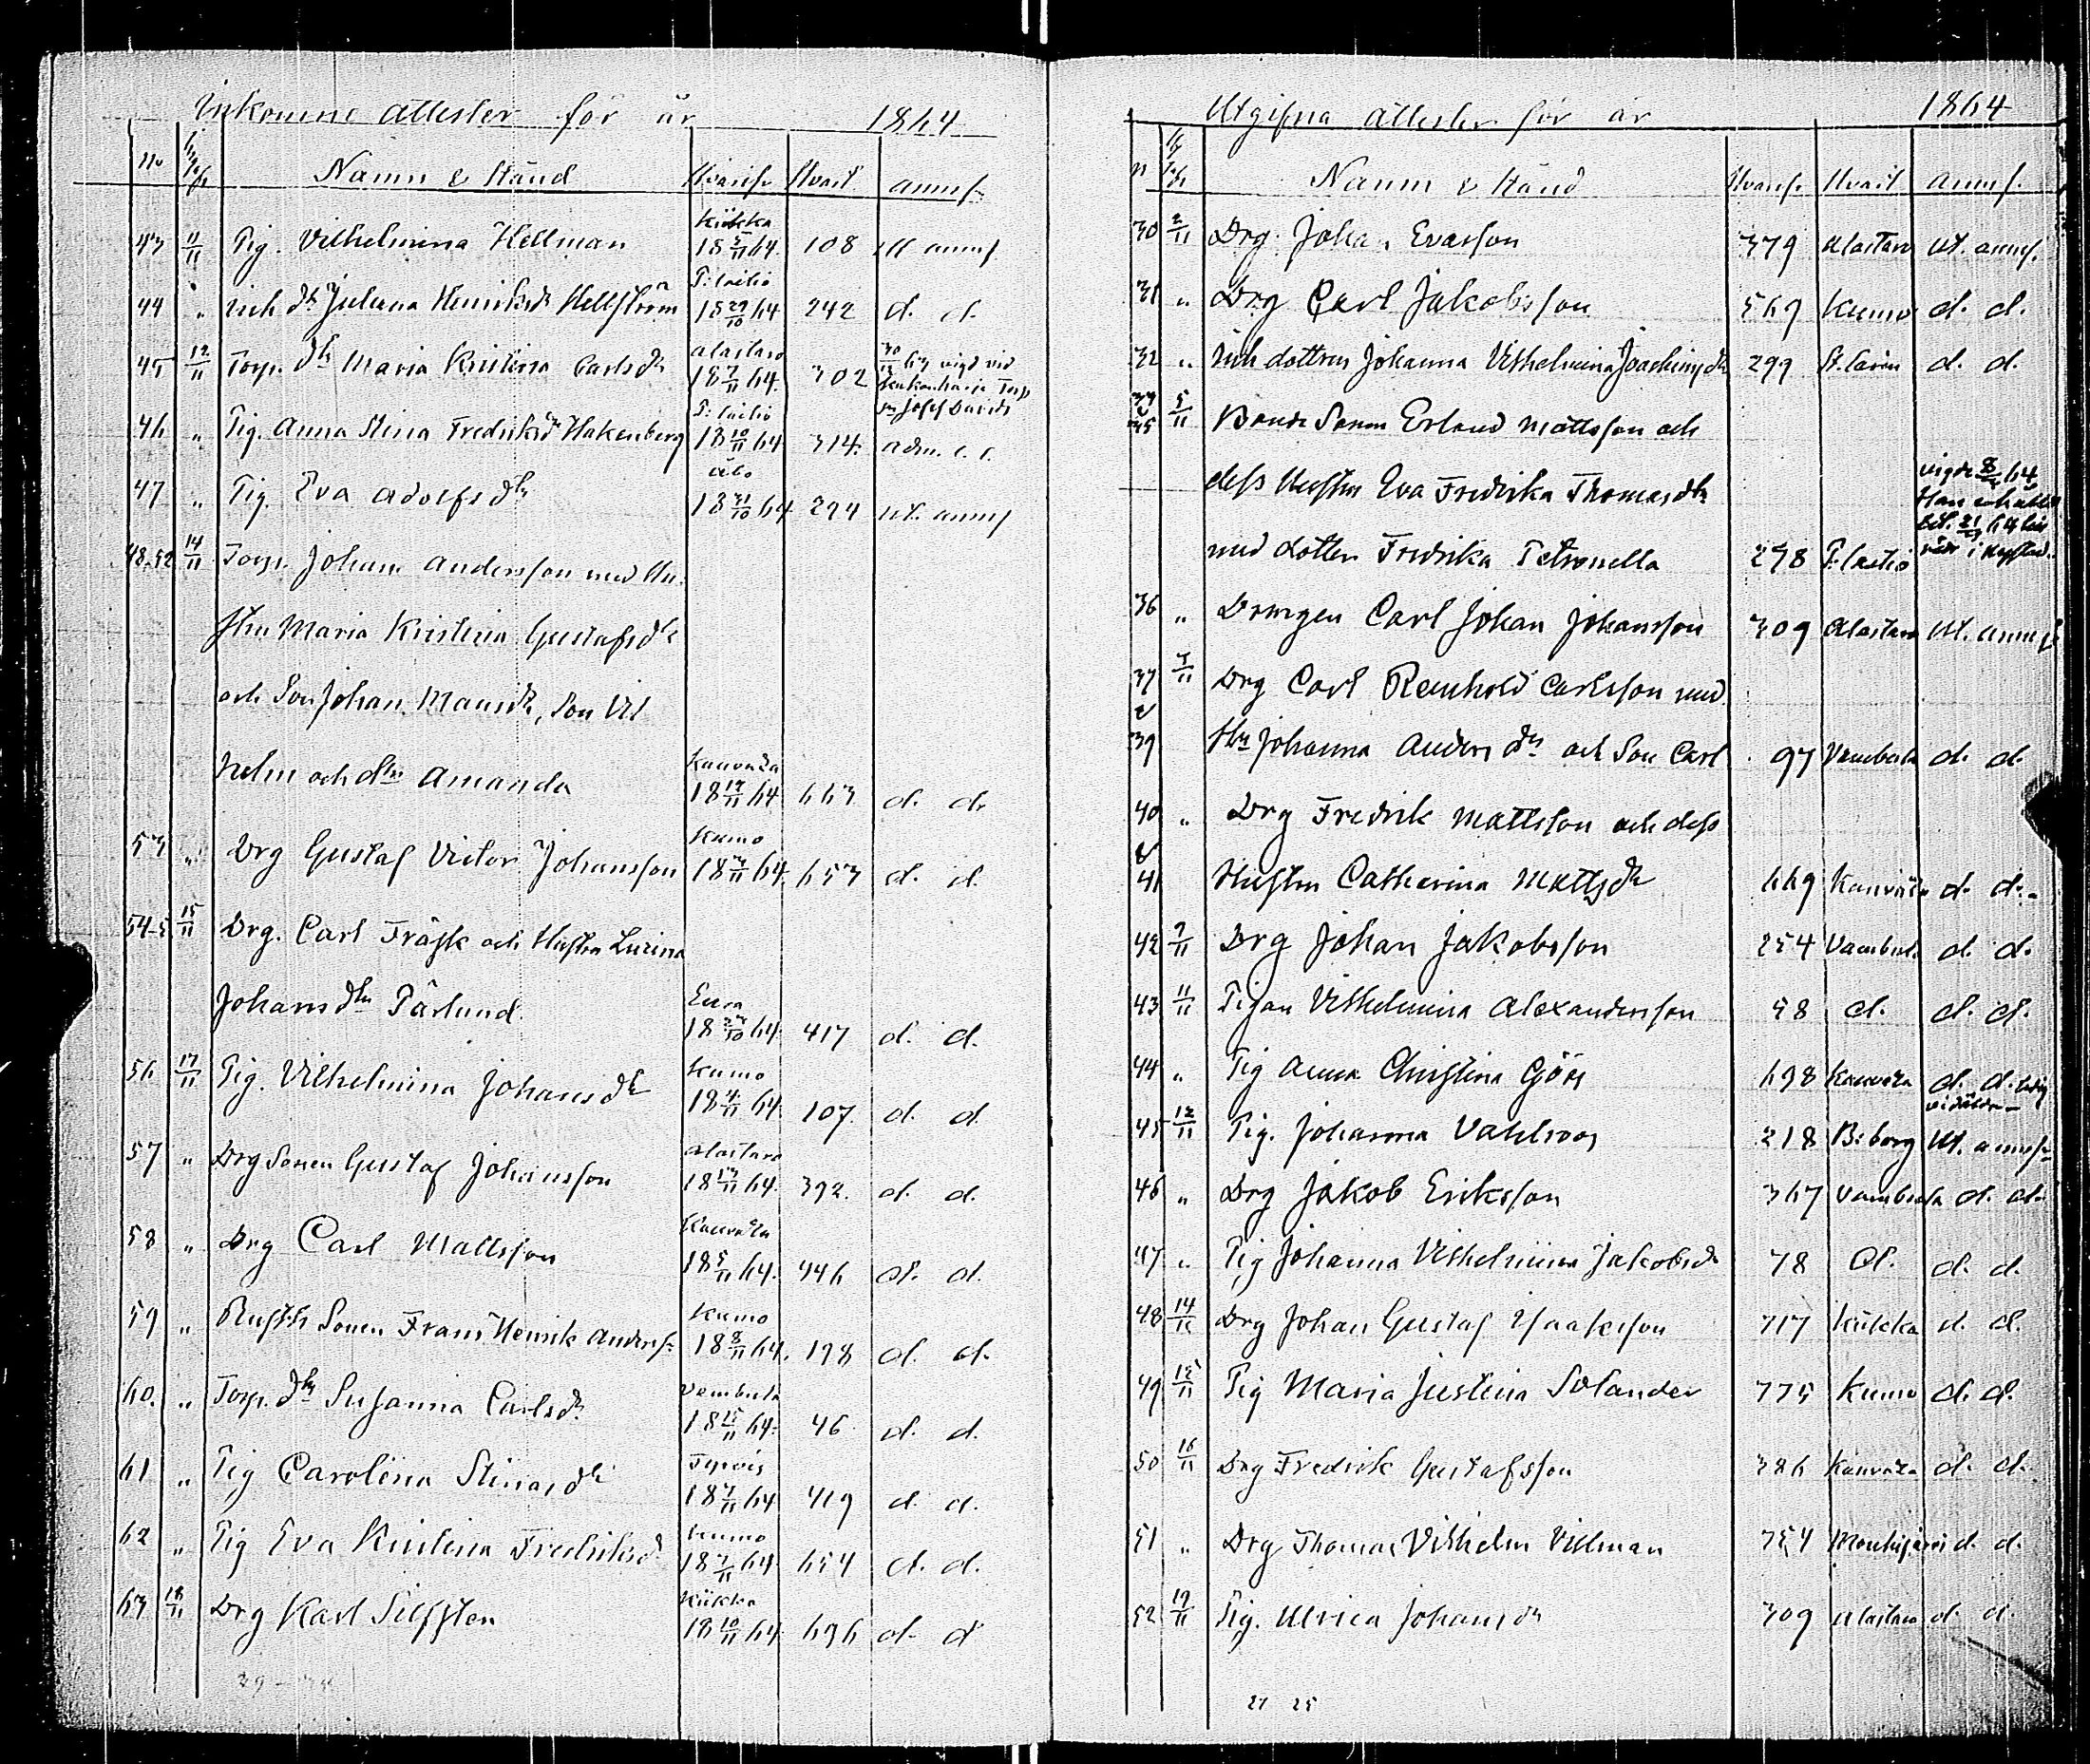 Inkomne attester för år 1864
No Namn & Stånd Hvarifr. Hvart anmf.
43 11/11 Pig. Vilhelmina Hellman Kiikka 18 5/11 64. 108 ut annf
44 " Inh dr Juliana Henriksdr Hellström P:laitio 18 29/10 64 242 d. d.
45 12/11 Torp. dr Maria Kristina Carlsdr Alastaro 18 7/11 64. 302
46 " Pig. Anna Stina Fredriksdr Hakenberg P:laitio 18 10/11 64 314.
47 " Pig. Eva Adolfsdr Åbo 18 31/10 64 294 ut. annf
48-52 14/11 Torp. Johan Andersson med Hu-
strn Maria Kristina Gustafsdr
och Son Johan, Son Vil
helm och dtr Amanda Kauvatsa 18 14/11 64 663 d. d.
53 " Drg Gustaf Victor Johansson Kumo 18 3/11 64. 653 d. d.
54-5 15/11 Drg. Carl Träsk och Hustru Lucina
Johansdtr Pärlund. Eura 18 24/10 64. 417 d. d.
56 17/11 Pig. Vilhelmina Johansdr Kumo 18 4/11 64 107. d. d
57 " Drg Sonen Gustaf Johansson Alastaro 18 13/11 64. 392. d. d.
58 " Drg Carl Mattsson Kauvatsa 18 5/11 64. 446 d. d.
59 " Rusth Sonen Frans Henrik Anderss: Kumo 18 8/11 64. 198 d. d.
60. " Torp. dr Susanna Carlsdr Vambula 18 15/11 64. 46 d. d.
61 " Pig Carolina Stinasdr Tyrvis 18 7/11 64 419 d. d.
62 " Pig Eva Kristina Fredriksd Kumo 18 7/11 64. 654 d. d.
63 18/11 Drg Karl Silfsten Kiikka 18 10/11 64. 696 d. d
Utgifna attester för år 1864
N Namn & Stånd Hvarifr. Hvart annf.
30 2/11 Drg. Johan Evasson 379 Alastaro ut. annf.
31 " Drg Carl Jakobsson 569 Kumo d. d.
32 " Inh dottren Johanna Vilhelmina Joachimsdr 299 d. d.
33 & 35 5/11 Bonde Sonen Erland Mattsson och
dess Hustru Eva Fredrika Thomasdtr
med dotter Fredrika Petronella 278 P:laitio
36 " Drängen Carl Johan Johansson 309 Alastaro ut. annf
37 7/11 Drg Carl Reinhold Carlsson med
& 39 Hu Johanna Andersdr och Son Carl 97 Vambula d. d.
40 " Drg Fredrik Mattsson och dess
& 41 Hustru Catharina Mattsdr 669 Kauvatsa d. d.
42 9/11 Drg Johan Jakobsson 254 Vambula d. d.
43 11/11 Pigan Vilhelmina Alexandersson 58 d. d. d.
44 " Pig Anna Christina Görs 698 Kauvatsa d. d.
45 12/11 Pig. Johanna Vahlroos 218 B:borg ut. annf
46 " Drg Jakob Eriksson 367 Vambula d. d.
47 " Pig Johanna Vilhelmina Jakobsdr 78 d. d. d.
48 14/11 Drg Johan Gustaf Isaksson 717 Kiikka d. d.
49 15/11 Pig Maria Justina Solander 775 Kumo d. d.
50 16/11 Drg Fredrik Gustafsson 386 Kauvatsa d. d.
51 " Drg Thomas Vilhelm Villman 754 Mouhijärvi d. d.
52 19/11 Pig. Ulrica Johansdr 309 Alastaro d. d.
27 25